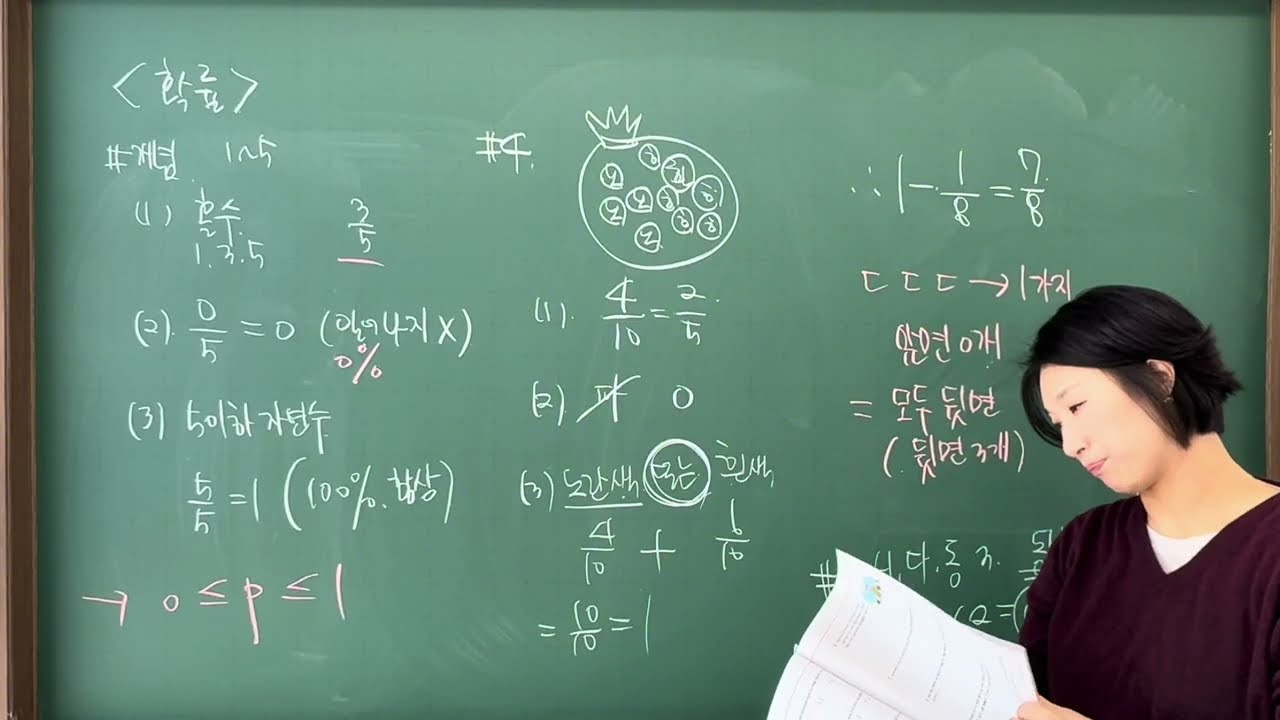 <확률>
#개념 1~5
(1) 홀수 3/5
1.3.5
(2). 0/5 = 0 (일어나지X)
0%
(3) 5이하 자연수
5/5 = 1 (100%. 항상)
→ 0 ≤ p ≤ 1
#4.
흰 흰
노 흰
노 노 흰
노 흰 흰
(1). 4/10 = 2/5
(2). 파 0
(3) 노란색 또는 흰색
4/10 + 6/10
= 10/10 = 1
∴ 1 - 1/8 = 7/8
ㄷ ㄷ ㄷ → 1가지
앞면 0개
= 모두 뒷면
(뒷면 3개)